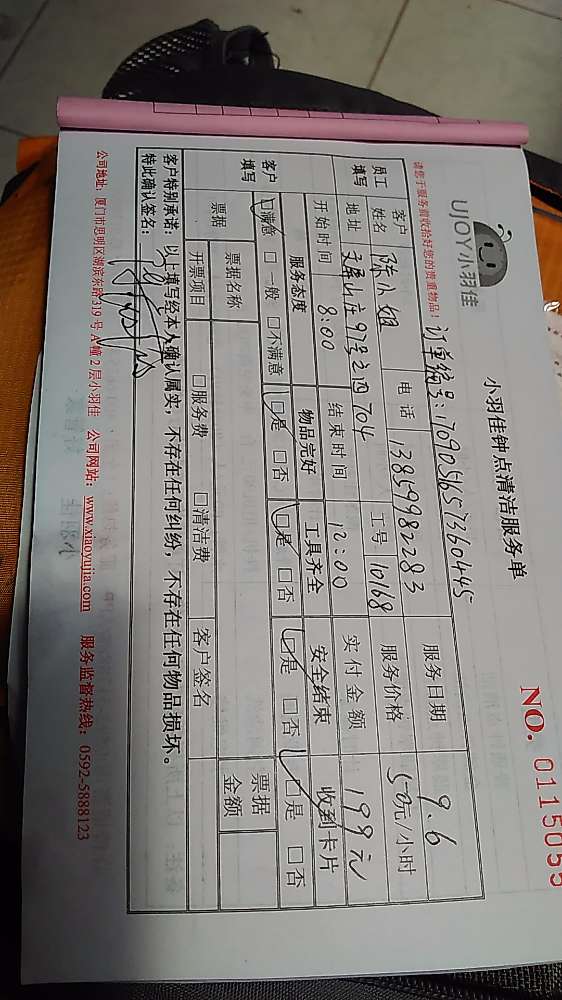 UJOY小羽佳
小羽佳钟点清洁服务单
NO. 0115055
请您于服务前收拾好您的贵重物品！
订单编号：1709056573360445
员工填写
客户姓名 陈小姐 电话 13859982283 服务日期 9.6
地址 97号之四704 工号 10168 服务价格 50元/小时
开始时间 8:00 结束时间 12:00 实付金额 199元
客户填写
服务态度 物品完好 工具齐全 安全结束 收到卡片
☑满意 □一般 □不满意 ☑是 □否 ☑是 □否 ☑是 □否 ☑是 □否
票据 票据名称 客户签名 票据金额
开票项目 □服务费 □清洁费
客户特别承诺：以上填写经本人确认属实，不存在任何纠纷，不存在任何物品损坏。
特此确认签名：
公司地址：厦门市思明区湖滨东路319号A幢2层小羽佳 公司网站：www.xiaoyujia.com 服务监督热线：0592-5888123